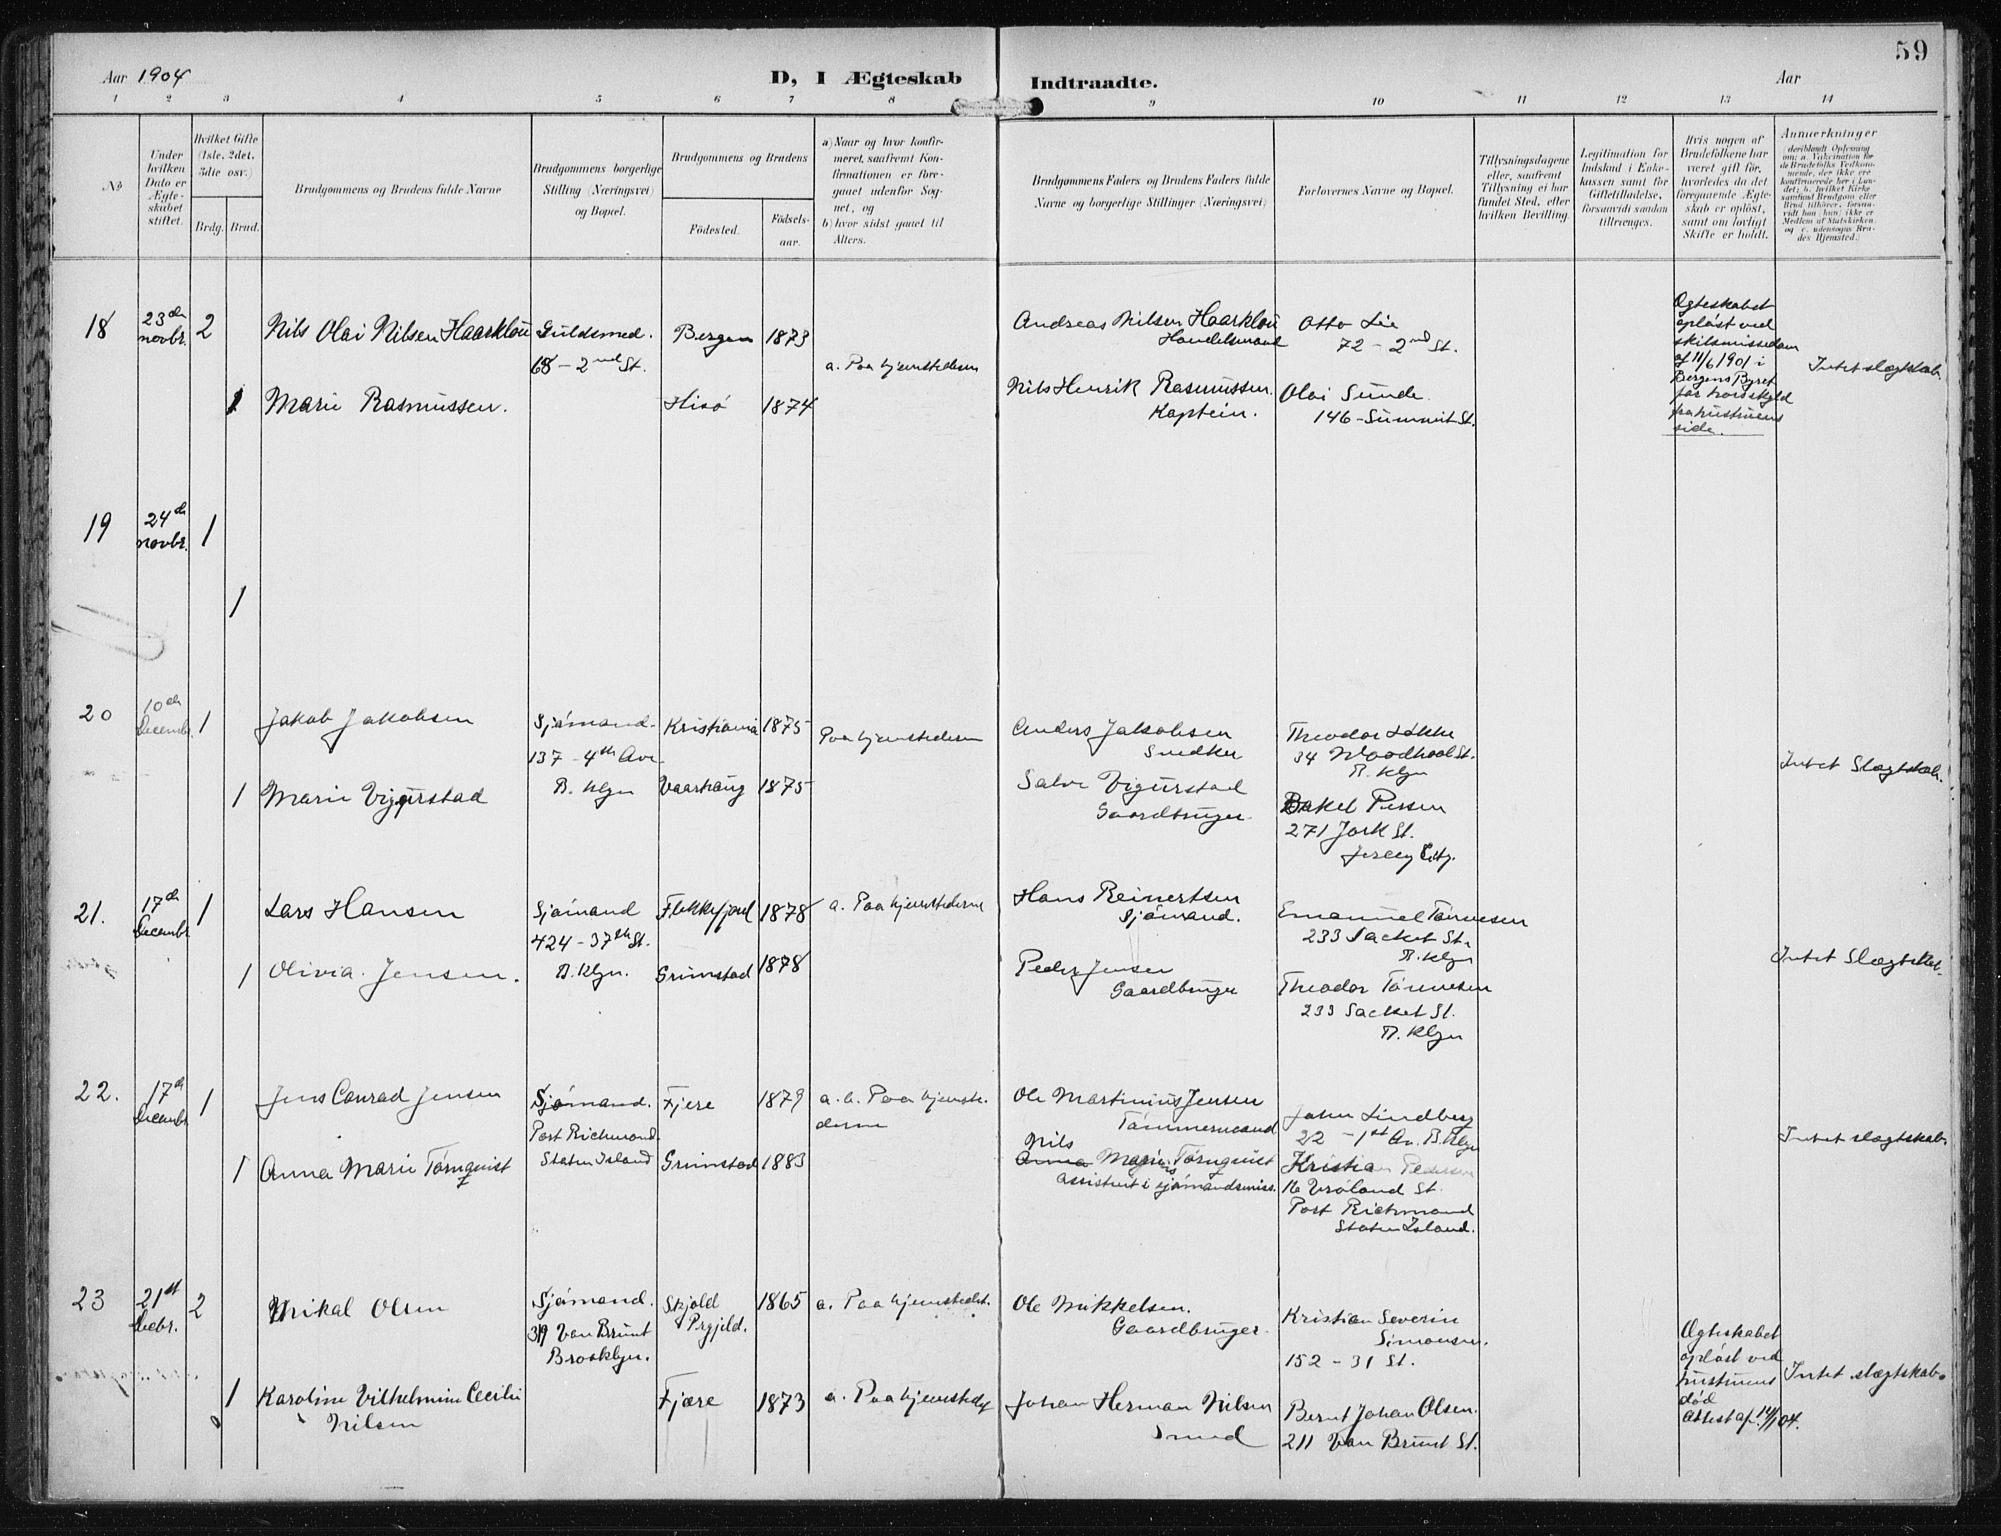 59
Aar 1904
D, I Ægteskab
Indtraadte.
Aar
1 2 3 4 5 6 7 8 9 10 11 12 13 14
No
Under
hvilken
Dato er
Ægte-
skabet
stiftet.
Hvilket Gifte
(1ste, 2det,
3die osv.)
Brdg. Brud.
Brudgommens og Brudens fulde Navne
Brudgommens borgerlige
Stilling (Næringsvei)
og Bopæl.
Brudgommens og Brudens
Födested.
Födsels-
aar.
a) Naar og hvor konfir-
meret, saafremt Kon-
firmationen er fore-
gaaet udenfor Sog-
net, og
b) hvor sidst gaaet til
Alters.
Brudgommens Faders og Brudens Faders fulde
Navne og borgerlige Stillinger (Næringsvei)
Forlovernes Navne og Bopæl.
Tillysningsdagene
eller, saafremt
Tillysning ei har
fundet Sted, efter
hvilken Bevilling.
Legitimation for
Indskud i Enke-
kassen samt for
Giftetilladelse,
forsaavidt saadan
tiltrænges.
Hvis nogen af
Brudefolkene har
været gift för,
hvorledes da det
foregaaende Ægte-
skab er oplöst,
samt om lovligt
Skifte er holdt.
Anmerkninger
(deriblandt Oplysning
om: a. Vakcination for
de Brudefolks Vedkom-
mende, der ikke ere
konfirmerede her i Lan-
det; b. hvilket Kirke
samfund Brudgom eller
Brud tilhörer, forsaa-
vidt han (hun) ikke er
Medlem af Statskirken,
og c. udensogns Bru-
des Hjemsted.)
18
23de
novbr.
2
Nils Olai Nilsen Haarklou
Guldsmed.
68 - 2nd St.
Bergen
1873
a. Paa hjemstederne
Andreas Nilsen Haarklou
Handelsmand
Otto Lie
72 - 2nd St.
Ægteskabet
opløst ved
skilsmissedom
af 11/6 1901 i
Bergens Byret
for hor skyld
fra hustruens
side.
Intet slægtskab.
1
Marie Rasmussen.
Hisö
1874
Nils Henrik Rasmussen.
Kaptein.
Olai Sunde.
146 - Summit St.
19
24de
novbr.
1
1
20
10de
Decembr.
1
Jakob Jakobsen
Sjömand.
137 - 4th Ave.
B. klyn
Kristiania
1875
Paa hjemstederne
Anders Jakobsen
Snedker
Theodor Løkke
34 Woodhool St.
B. klyn
Intet Slægtskab.
1
Marie Vigurstad
Vaarhaug
1875
Salve Vigurstad
Gaardbruger.
Bakel Persen
271 York St.
Jersey City.
21.
17de
Decembr
1
Lars Hansen
Sjömand
424 - 37th St.
B. Klyn.
Flekkefjord
1878
a. Paa hjemstederne
Hans Reinertsen
Sjömand.
Emanuel Tönnesen
233 Sacket St.
B. klyn
Intet Slægtskab.
1
Olivia Jensen.
Grimstad
1878
Peder Jensen
Gaardbruger
Theodor Tönnesen
233 Sacket St.
B. klyn
22.
17de
Decembr
1
Jens Conrad Jensen
Sjömand.
Port Richmond.
Staten Island
Fjere
1879
a. b. Paa hjemste-
derne
Ole Martinius Jensen
Tömmermand
John Lindberg
22 - 1st Av. B. klyn
Intet slægtskab.
1
Anna Marie Törnquist
Grimstad
1883
Nils
Anna Marius Törnquist
assistent i sjömandsmiss.
Kristian Pedersen
16 Vröland St.
Port Richmond
Staten Island.
23
21st
Decbr.
2
Mikal Olsen
Sjömand.
319 Van Brunt
Brooklyn.
Skjold
Prgjeld.
1865
a. Paa hjemstedet.
Ole Mikkelsen.
Gaardbruger.
Kristian Severin
Simonsen.
152 - 31 St.
Ægteskabet
opløst ved
hustruens
död
Attest af 14/1 04.
Intet slægtskab.
1
Karoline Vilhelmine Cecilie
Nilsen
Fjære
1873
a. Paa hjemstedet
Johan Herman Nilsen
Smed
Bernt Johan Olsen.
211 Van Brunt St.